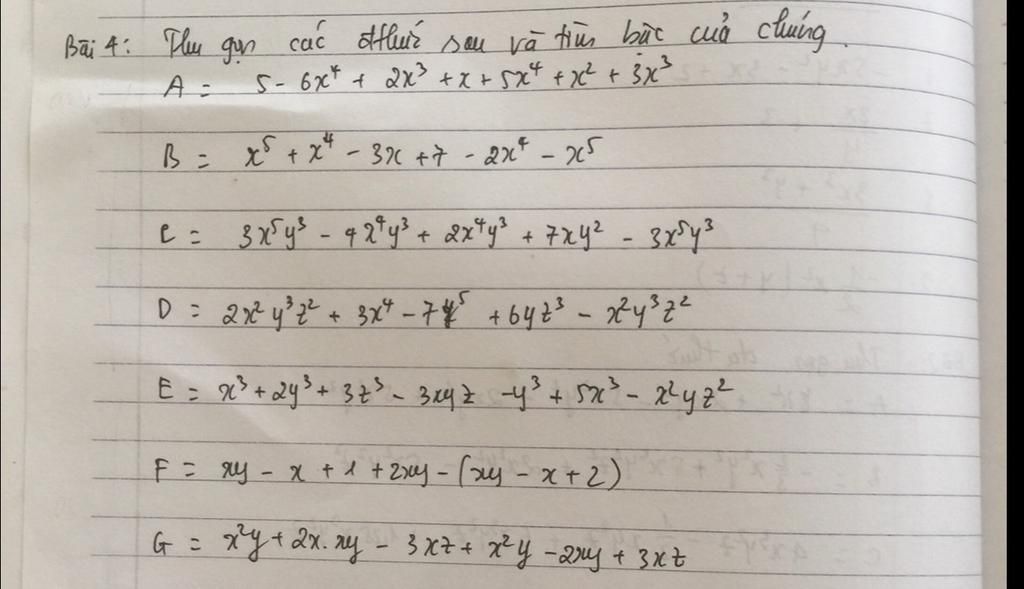 Bài 4: Thu gọn các đthức sau và tìm bậc của chúng.
A = 5 - 6x⁴ + 2x³ + x + 5x⁴ + x² + 3x³
B = x⁵ + x⁴ - 3x + 7 - 2x⁴ - x⁵
C = 3x⁵y³ - 4x⁴y³ + 2x⁴y³ + 7xy² - 3x⁵y³
D = 2x²y³z² + 3x⁴ - 7y⁵ + 6yz³ - x²y³z²
E = x³ + 2y³ + 3z³ - 3xyz - y³ + 5x³ - x²yz²
F = xy - x + 1 + 2xy - (xy - x + 2)
G = x²y + 2x.xy - 3xz + x²y - 2xy + 3xz